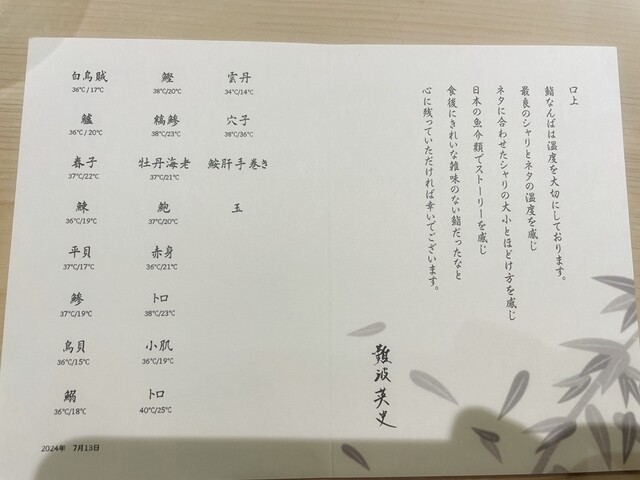 口上
鮨なんばは温度を大切にしております。
最良のシャリとネタの温度を感じ
ネタに合わせたシャリの大小とほどけ方を感じ
日本の魚介類でストーリーを感じ
食後にきれいな雑味のない鮨だったなと
心に残っていただければ幸いでございます。
難波英史
白烏賊
36℃/17℃
鱸
36℃/20℃
春子
37℃/22℃
鰊
36℃/19℃
平貝
37℃/17℃
鯵
37℃/19℃
鳥貝
36℃/15℃
鰯
36℃/18℃
鰹
38℃/20℃
縞鯵
38℃/23℃
牡丹海老
37℃/21℃
鮑
37℃/20℃
赤身
36℃/21℃
トロ
38℃/23℃
小肌
36℃/19℃
トロ
40℃/25℃
雲丹
34℃/14℃
穴子
38℃/36℃
鮟肝手巻き
玉
2024年 7月13日